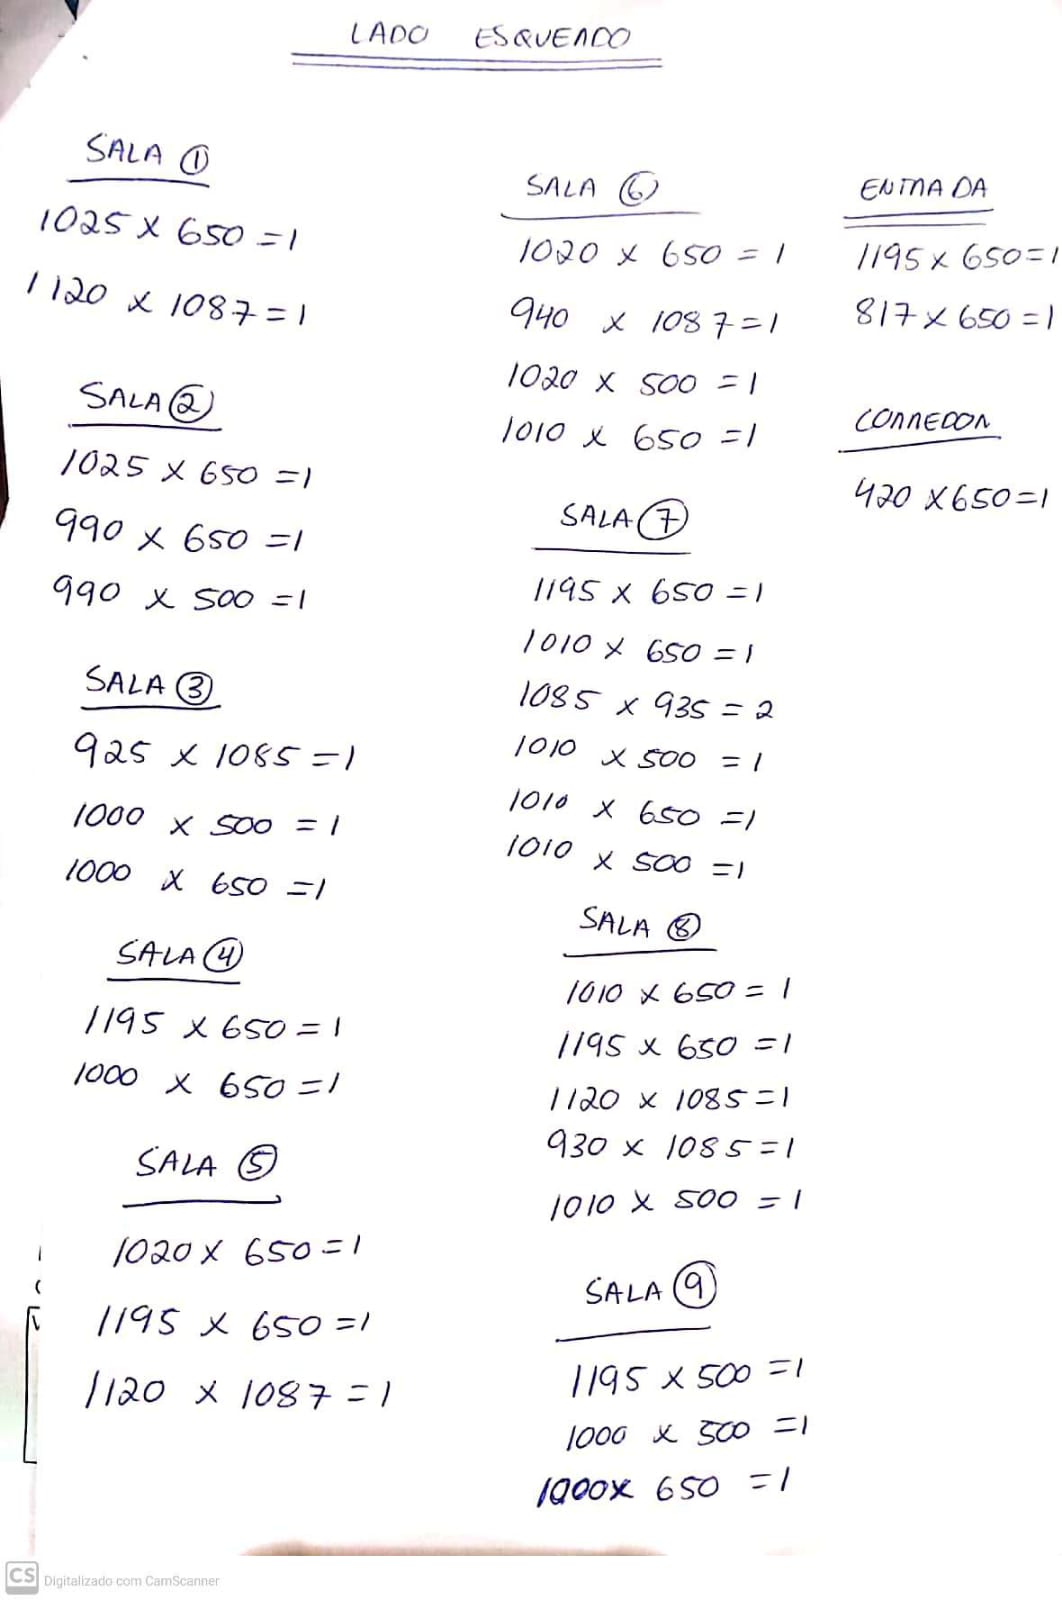 LADO ESQUERDO
SALA 1
1025 x 650 = 1
1120 x 1087 = 1
SALA 2
1025 x 650 = 1
990 x 650 = 1
990 x 500 = 1
SALA 3
925 x 1085 = 1
1000 x 500 = 1
1000 x 650 = 1
SALA 4
1195 x 650 = 1
1000 x 650 = 1
SALA 5
1020 x 650 = 1
1195 x 650 = 1
1120 x 1087 = 1
SALA 6
1020 x 650 = 1
940 x 1087 = 1
1020 x 500 = 1
1010 x 650 = 1
SALA 7
1195 x 650 = 1
1010 x 650 = 1
1085 x 935 = 2
1010 x 500 = 1
1010 x 650 = 1
1010 x 500 = 1
SALA 8
1010 x 650 = 1
1195 x 650 = 1
1120 x 1085 = 1
930 x 1085 = 1
1010 x 500 = 1
SALA 9
1195 x 500 = 1
1000 x 500 = 1
1000 x 650 = 1
ENTRADA
1195 x 650 = 1
817 x 650 = 1
CORREDOR
420 x 650 = 1
CS Digitalizado com CamScanner